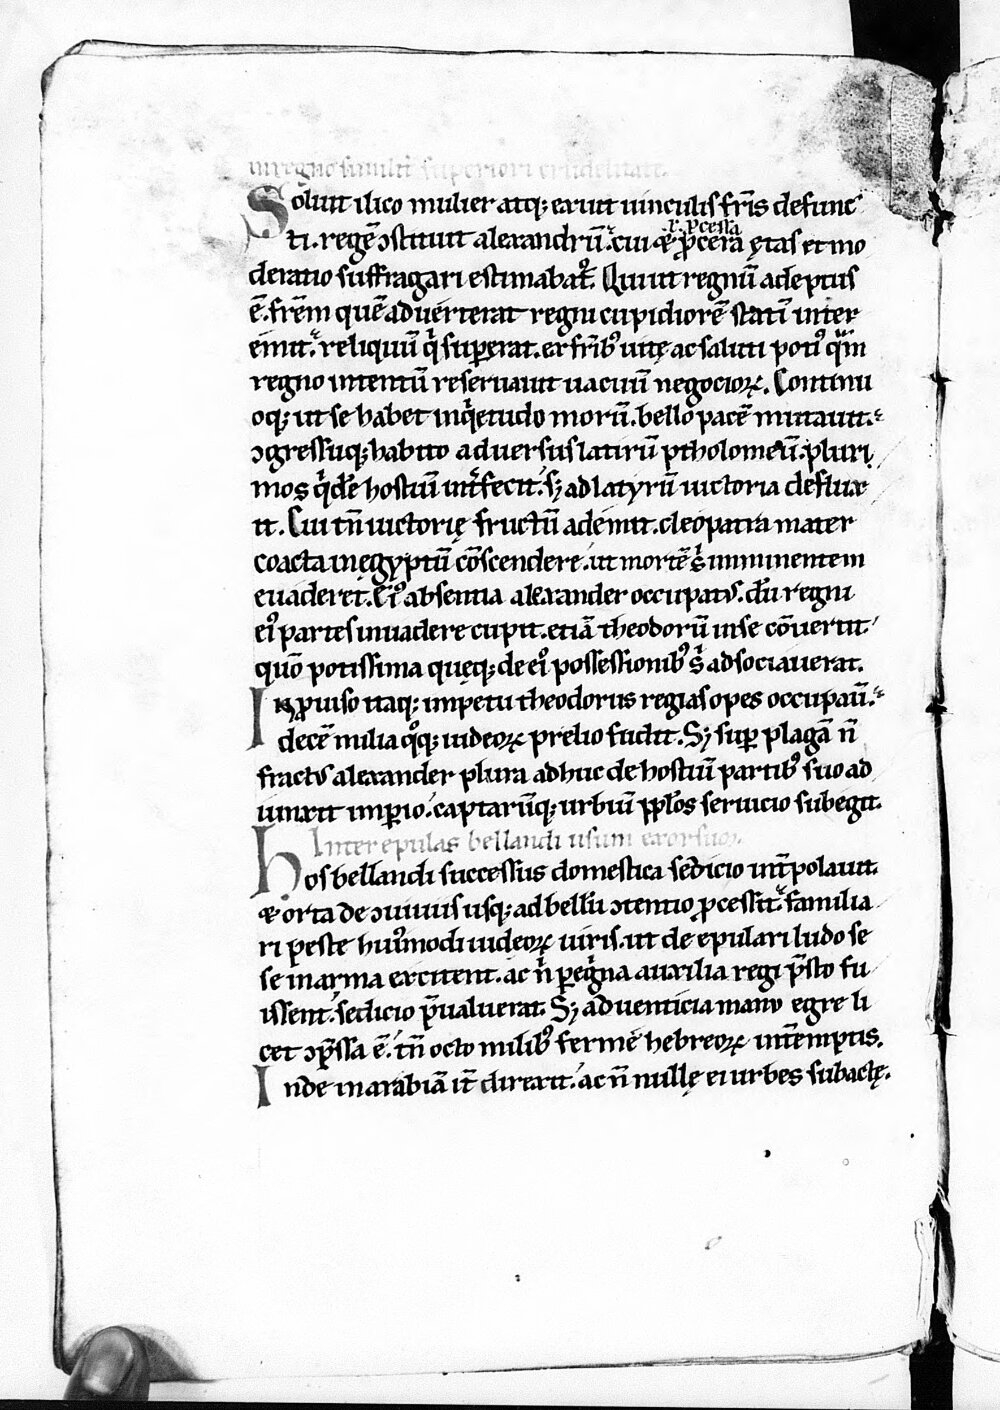 in regno simili superiori crudelitate.
Soluit ilico mulier atq; exuit uinculis fr̄is defunc
ti. regē ↄstituit alexandrū. cui & p̄cera ętas et mo
ł p̄cessa
deratio suffragari estimabat᷑. Qui ut regnū adeptus
ē. frēm quē aduerterat regni cupidiorē statī inter
emit. reliquū q̄ suꝑerat. ex frīb᷒ uitę ac saluti poti᷒ q̄m
regno intentū reseruauit uacuū negocioꝝ. Continu
oq; ut se habet inq̄etudo morū. bello pacē mutauit.
ↄgressuq; habito aduersus latirū ptholomeū. pluri
mos q̄dē hostiū int̄fecit. sꝫ ad latyrū uictoria deflux
it. Cui tn̄ uictorię fructū ademit. cleopatra mater
coacta in ęgyptū cōscendere. ut mortē s̄ imminentem
euaderet. Ei᷒ absentia alexander occupatus. dū regni
ei᷒ partes inuadere cupit. etiā theodorū in se cōuertit.
quō potissima queq; de ei᷒ possessionib᷒ s̄ adsociauerat.
Inꝓuiso itaq; impetu theodorus regias opes occupauī.
decē milia q̊q; iudeoꝝ prelio fudit. Sꝫ suꝑ plagā n̄
fractus alexander plura adhuc de hostiū partib᷒ suo ad
iunxit imꝑio. captarūq; urbiū pp̄los seruicio subegit.
Inter epulas bellandi usum exorsū.
Hos bellandi successus domestica sedicio int̄polauit.
& orta de ↄuiuiis usq; ad bellū ↄtentio p̄cessit. familia
ri peste hui᷒modi iudeoꝝ uiris. ut de epulari ludo se
se in arma excitent. ac n̄ ꝑeg̊na auxilia regi p̄sto fu
issent. sedicio p̄ualuerat. Sꝫ aduenticia manu egre li
cet ↄp̄ssa ē. tn̄ octo milib᷒ fermē hebreoꝝ int̄emptis.
Inde in arabiā it̄ direxit. ac n̄ nullę ei urbes subactę.